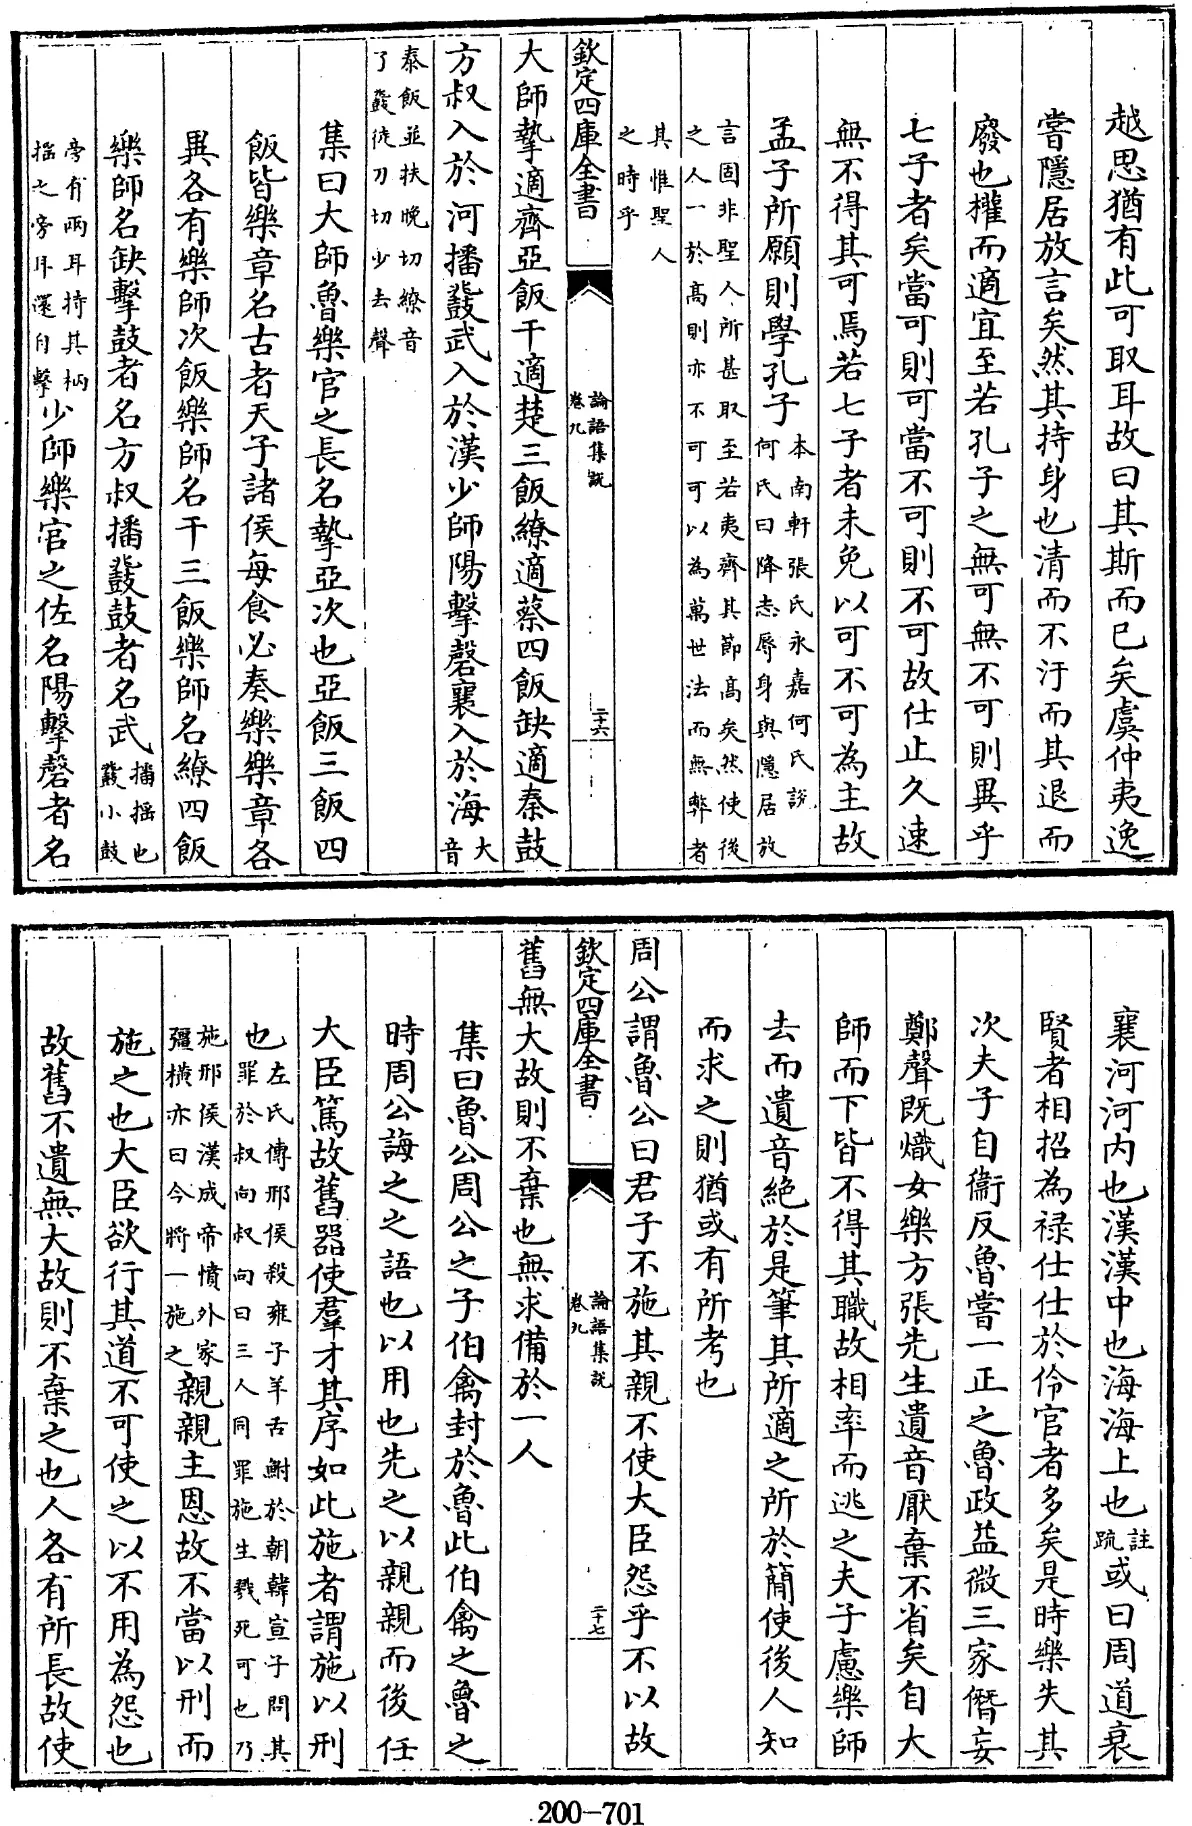 越思猶有此可取耳故曰其斯而已矣虞仲夷逸
嘗隱居放言矣然其持身也清而不汙而其退而
廢也權而適宜至若孔子之無可無不可則異乎
七子者矣當可則可當不可則不可故仕止久速
無不得其可焉若七子者未免以可不可為主故
孟子所願則學孔子本南軒張氏永嘉何氏說
何氏曰降志辱身與隱居放
言固非聖人所甚取至若夷齊其節高矣然使後
之人一於高則亦不可可以為萬世法而無弊者
其惟聖人
之時乎
欽定四庫全書
論語集說
卷九
二十六
大師摯適齊亞飯干適楚三飯繚適蔡四飯缺適秦鼓
方叔入於河播鼗武入於漢少師陽擊磬襄入於海大
音
泰飯並扶晚切繚音
了鼗徒刀切少去聲
集曰大師魯樂官之長名摯亞次也亞飯三飯四
飯皆樂章名古者天子諸侯每食必奏樂樂章各
異各有樂師次飯樂師名干三飯樂師名繚四飯
樂師名缺擊鼓者名方叔播鼗鼓者名武播搖也
鼗小鼓
旁有兩耳持其柄
搖之旁耳還自擊少師樂官之佐名陽擊磬者名
襄河河内也漢漢中也海海上也註
疏或曰周道衰
賢者相招為禄仕仕於伶官者多矣是時樂失其
次夫子自衞反魯嘗一正之魯政益微三家僭妄
鄭聲既熾女樂方張先生遺音厭棄不省矣自大
師而下皆不得其職故相率而逃之夫子慮樂師
去而遺音絶於是筆其所適之所於簡使後人知
而求之則猶或有所考也
周公謂魯公曰君子不施其親不使大臣怨乎不以故
欽定四庫全書
論語集說
卷九
二十七
舊無大故則不棄也無求備於一人
集曰魯公周公之子伯禽封於魯此伯禽之魯之
時周公誨之之語也以用也先之以親親而後任
大臣篤故舊器使羣才其序如此施者謂施以刑
也左氏傳邢侯殺雍子羊舌鮒於朝韓宣子問其
罪於叔向叔向曰三人同罪施生戮死可也乃
施邢侯漢成帝憤外家
彊横亦曰今將一施之親親主恩故不當以刑而
施之也大臣欲行其道不可使之以不用為怨也
故舊不遺無大故則不棄之也人各有所長故使
200-701